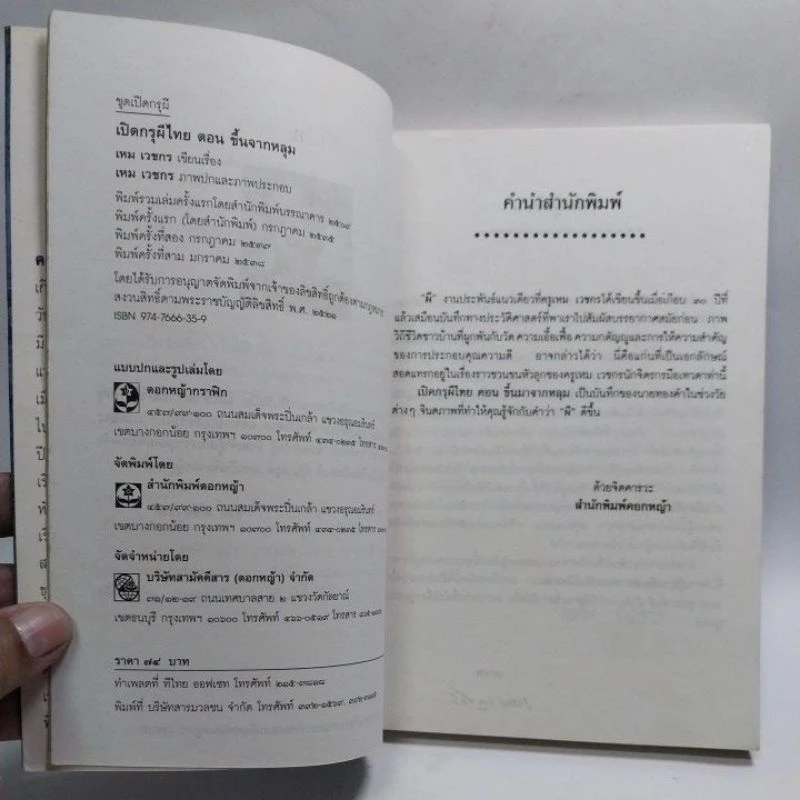 ชุดเปิดกรุผี
เปิดกรุผีไทย ตอน ขึ้นจากหลุม
เหม เวชกร เขียนเรื่อง
เหม เวชกร ภาพปกและภาพประกอบ
พิมพ์รวมเล่มครั้งแรกโดยสำนักพิมพ์บรรณาคาร ๒๕๐๙
พิมพ์ครั้งแรก (โดยสำนักพิมพ์) กรกฎาคม ๒๕๓๕
พิมพ์ครั้งที่สอง กรกฎาคม ๒๕๓๗
พิมพ์ครั้งที่สาม มกราคม ๒๕๓๘
โดยได้รับการอนุญาตจัดพิมพ์จากเจ้าของลิขสิทธิ์ถูกต้องตามกฎหมาย
สงวนสิทธิ์ตามพระราชบัญญัติลิขสิทธิ์ พ.ศ. ๒๕๒๑
ISBN 974-7666-35-9
แบบปกและรูปเล่มโดย
ดอกหญ้ากราฟิก
๔๕๗/๙๙-๑๐๐ ถนนสมเด็จพระปิ่นเกล้า แขวงอรุณอมรินทร์
เขตบางกอกน้อย กรุงเทพฯ ๑๐๗๐๐ โทรศัพท์ ๔๓๔-๐๒๓๕ โทรสาร
จัดพิมพ์โดย
สำนักพิมพ์ดอกหญ้า
๔๕๗/๙๙-๑๐๐ ถนนสมเด็จพระปิ่นเกล้า แขวงอรุณอมรินทร์
เขตบางกอกน้อย กรุงเทพฯ ๑๐๗๐๐ โทรศัพท์ ๔๓๔-๐๒๓๕ โทรสาร
จัดจำหน่ายโดย
บริษัทสามัคคีสาร (ดอกหญ้า) จำกัด
๓๑/๑๒-๑๙ ถนนเทศบาลสาย ๒ แขวงวัดกัลยาณ์
เขตธนบุรี กรุงเทพฯ ๑๐๖๐๐ โทรศัพท์ ๔๖๖-๐๕๑๙ โทรสาร
ราคา ๗๔ บาท
ทำเพลตที่ ทีไทย ออฟเซท โทรศัพท์ ๒๑๕-๓๘๑๘
พิมพ์ที่ บริษัทสารมวลชน จำกัด โทรศัพท์ ๓๙๒-๑๕๖๙,
คำนำสำนักพิมพ์
"ผี" งานประพันธ์แนวเดียวที่ครูเหม เวชกรได้เขียนขึ้นเมื่อเกือบ ๓๐ ปีที่
แล้วเสมือนบันทึกทางประวัติศาสตร์ที่พาเราไปสัมผัสบรรยากาศสมัยก่อน ภาพ
วิถีชีวิตชาวบ้านที่ผูกพันกับวัด ความเอื้อเฟื้อ ความกตัญญูและการให้ความสำคัญ
ของการประกอบคุณความดี อาจกล่าวได้ว่า นี่คือแก่นที่เป็นเอกลักษณ์
สอดแทรกอยู่ในเรื่องราวชวนขนหัวลุกของครูเหม เวชกรนักจิตรกรมือเทวดาท่านนี้
เปิดกรุผีไทย ตอน ขึ้นมาจากหลุม เป็นบันทึกของนายทองคำในช่วงวัย
ต่างๆ จินตภาพที่ทำให้คุณรู้จักกับคำว่า "ผี" ดีขึ้น
ด้วยจิตคารวะ
สำนักพิมพ์ดอกหญ้า